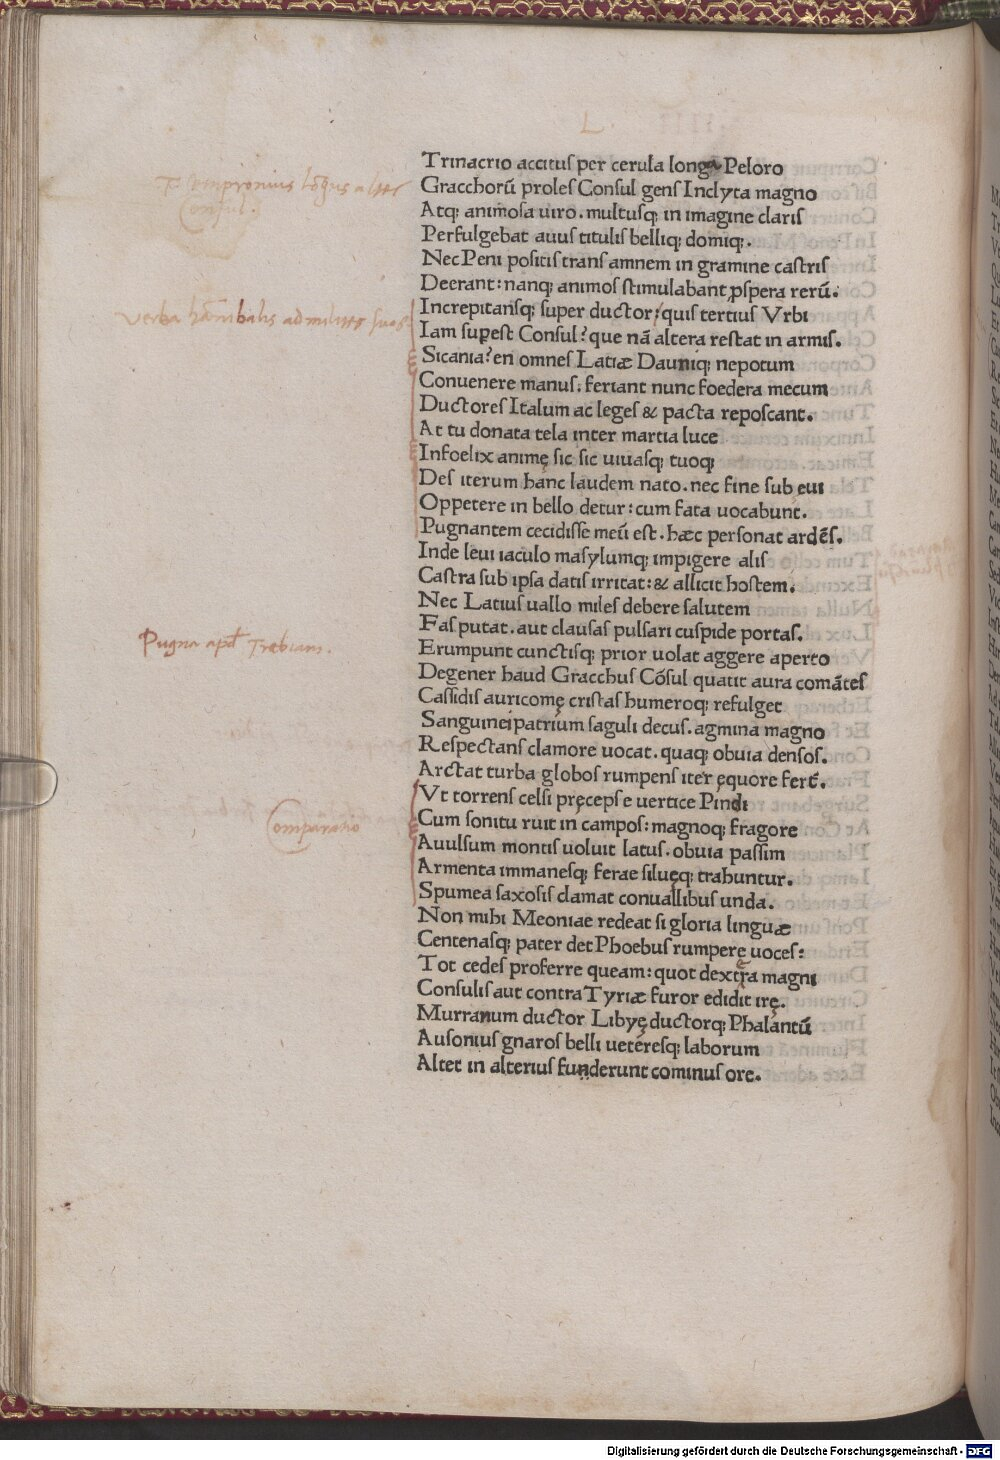 L
Trinacrio accitus per cerula longa Peloro
Gracchorū proles Consul gens Inclyta magno
T. Sempronius lōgus alter
Consul.
Atq; animosa uiro. multusq; in imagine claris
Perfulgebat auus titulis belliq; domiq;.
Nec Peni positis trans amnem in gramine castris
Deerant: nanq; animos stimulabant ꝓspera rerū.
Increpitansq; super ductor: quis tertius Vrbi
Verba hānibalis ad milites suos
Iam suꝑest Consul? que nā altera restat in armis.
Sicania? en omnes Latiæ Dauniq; nepotum
Conuenere manus. feriant nunc foedera mecum
Ductores Italum ac leges & pacta reposcant.
At tu donata tela inter martia luce
Infoelix animę sic sic uiuasq; tuoq;
Des iterum hanc laudem nato. nec fine sub ęui
Oppetere in bello detur: cum fata uocabunt.
Pugnantem cecidisse meū est. hæc personat ardēs.
Inde leui iaculo masylumq; impigere alis
Castra sub ipsa datis irritat: & allicit hostem.
Nec Latius uallo miles debere salutem
Fas putat. aut clausas pulsari cuspide portas.
Pugna apđ Trebiam.
Erumpunt cunctisq; prior uolat aggere aperto
Degener haud Gracchus Cōsul quatit aura comātes
Cassidis auricomę cristas humeroq; refulget
Sanguinei patrium saguli decus. agmina magno
Respectans clamore uocat. quaq; obuia densos.
Arctat turba globos rumpens iter ęquore fert̄.
Vt torrens celsi pręceps e uertice Pindi
Cum sonitu ruit in campos: magnoq; fragore
Comparatio
Auulsum montis uoluit latus. obuia passim
Armenta immanesq; ferae siluęq; trahuntur.
Spumea saxosis clamat conuallibus unda.
Non mihi Meoniae redeat si gloria linguæ
Centenasq; pater det Phoebus rumpere uoces:
Tot cedes proferre queam: quot dextra magni
Consulis aut contra Tyriæ furor edidit irę.
Murranum ductor Libyę ductorq; Phalantū
Ausonius gnaros belli ueteresq; laborum
Alter in alterius funderunt cominus ore.
Digitalisierung gefördert durch die Deutsche Forschungsgemeinschaft - DFG